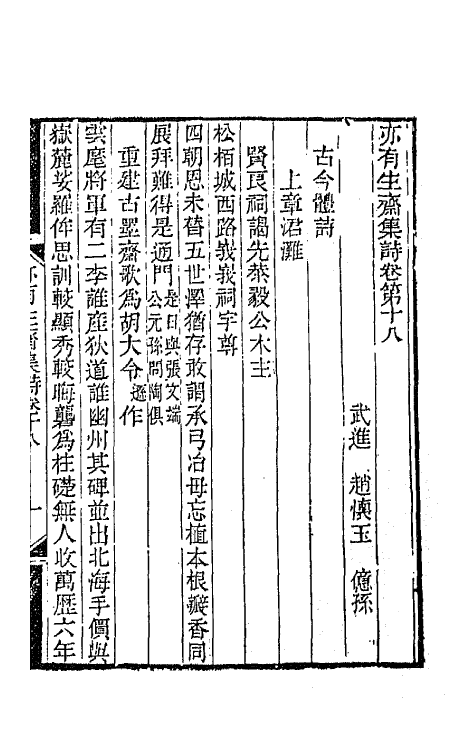 亦有生齋集詩卷第十八
武進　趙懷玉　億孫
古今體詩
上章涒灘
賢良祠謁先恭毅公木主
松栢城西路峩峩祠宇尊
四朝恩未替五世澤猶存敢謂承弓冶毋忘植本根瓣香同
展拜難得是通門是日與張文端公元孫問陶俱
重建古墨齋歌爲胡大令遜作
雲麾將軍有二李誰產狄道誰幽州其碑並出北海手價與
嶽麓娑羅侔思訓較顯秀較晦礱爲柱礎無人收萬歷六年
亦有生齋集詩卷十八
一